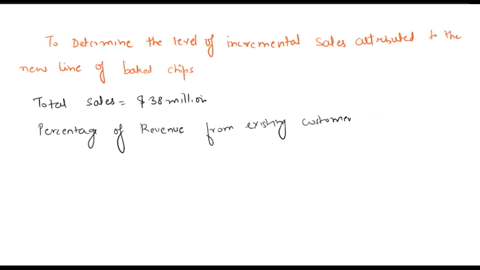 To Determine the level of incremental sales attributed to the
new line of baked chips
Total sales = $ 38 million
Percentage of Revenue from existing customer